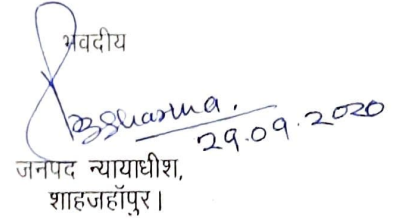 भवदीय
Sharma.
29.09.2020
जनपद न्यायाधीश,
शाहजहॉपुर।